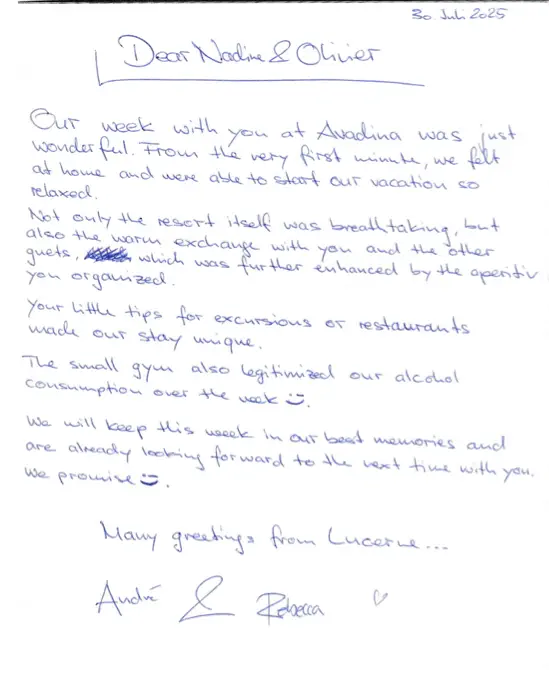 30 Juli 2025
Dear Nadine & Olivier
Our week with you at Avadina was just
wonderful. From the very first minute, we felt
at home and were able to start our vacation so
relaxed.
Not only the resort itself was breathtaking, but
also the warm exchange with you and the other
guets, which was further enhanced by the aperitiv
you organized.
Your little tips for excursions or restaurants
made our stay unique.
The small gym also legitimized our alcohol
consumption over the week :).
We will keep this week in our best memories and
are already looking forward to the next time with you.
We promise :).
Many greetings from Lucerne...
André & Rebecca ♡